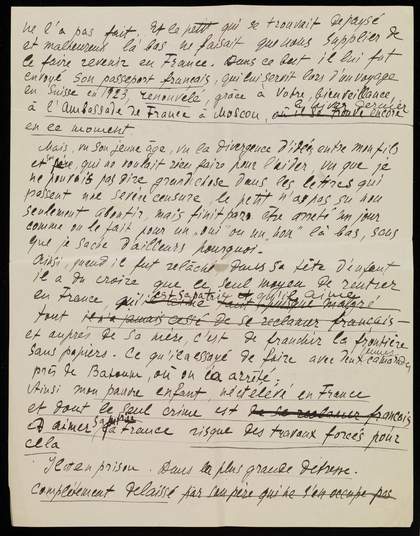 ne l'a pas fait. Et le petit qui se trouvait dépaysé
et malheureux là bas ne faisait que nous supplier de
le faire revenir en France. Dans ce but il lui fut
envoyé son passeport français, qui lui servit lors d'un voyage
en Suisse en 1923, renouvelé, grâce à Votre bienveillance,
à l'Ambassade de France à Moscou, où il se trouve encore
en ce moment
Mais, vu son jeune âge, vu la divergence d'idées entre mon fils
et père, qui ne voulait rien faire pour l'aider, vu que je
ne pouvais pas dire grand'chose dans les lettres qui
passent une sévère censure, le petit n'a pas su non
seulement aboutir, mais finit par être arrêté un jour
comme on le fait pour un "oui" ou un "non" là bas, sans
que je sache d'ailleurs pourquoi.
Ainsi, quand il fut relâché dans sa tête d'enfant
il a dû croire que le seul moyen de rentrer
en France, qui est sa patrie et qu'il aime malgré
tout il n'a jamais cessé de se réclamer français
et auprès de sa mère, c'est de franchir la frontière
sans papiers. Ce qu'il essaya de faire avec deux jeunes camarades
près de Batoum, où on l'a arrêté.
Ainsi mon pauvre enfant, né et élevé en France
et dont le seul crime est de se réclamer français
et aimer sa patrie la France risque des travaux forcés pour
cela
Il est en prison. Dans la plus grande détresse.
complètement délaissé par son père qui ne s'en occupe pas